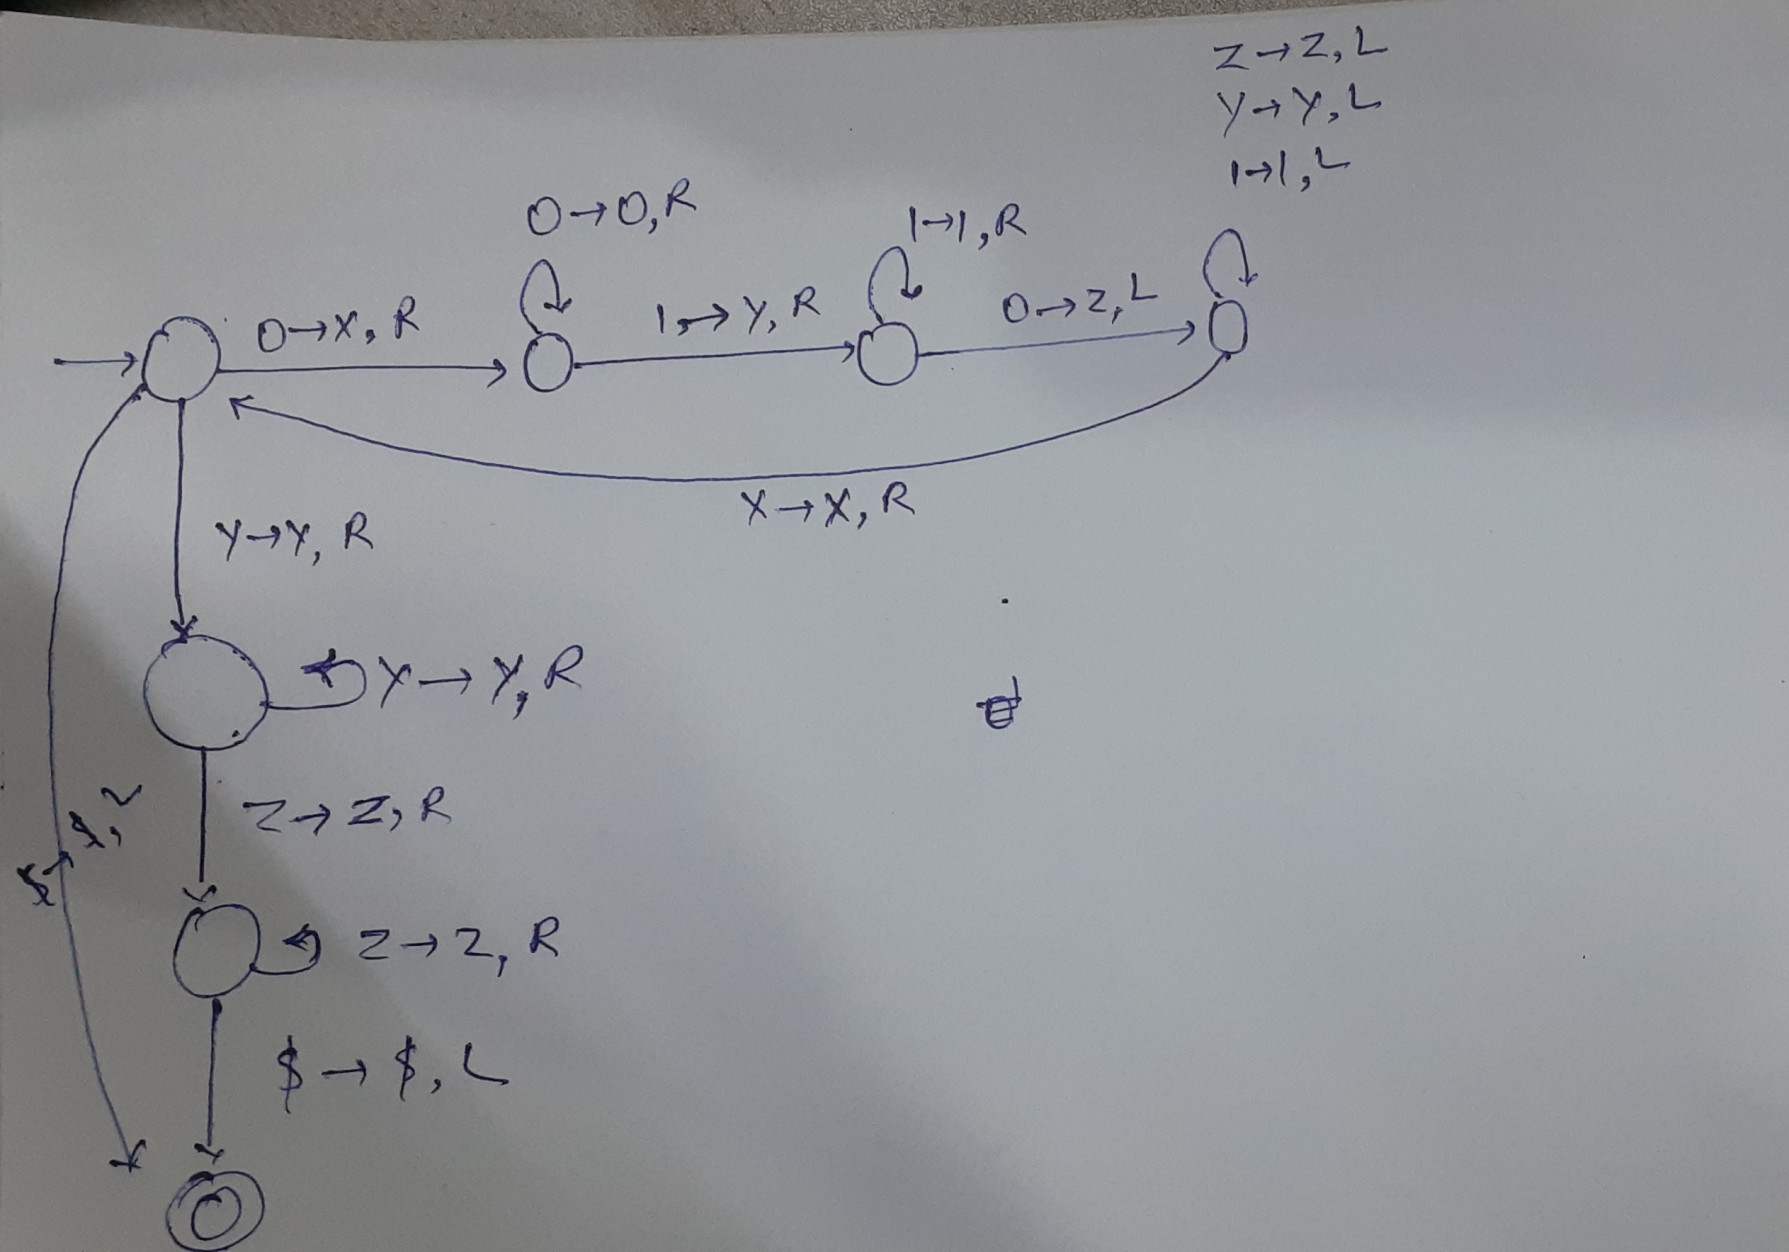 Z→Z, L
Y→Y, L
1→1, L
0→0, R
1→1, R
0→X, R
1→Y, R
0→Z, L
X→X, R
Y→Y, R
Y→Y, R
Z→Z, R
$→$, L
Z→Z, R
$→$, L